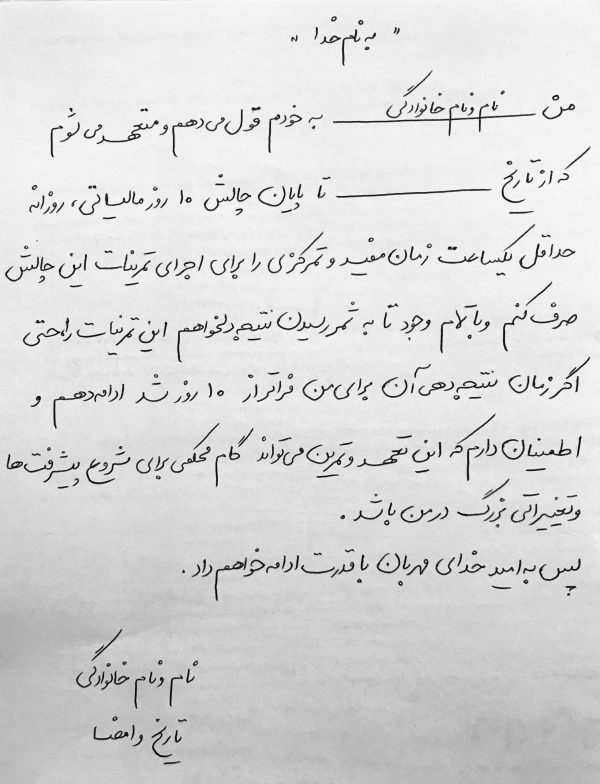 « به نام خدا »
من نام و نام خانوادگی به خودم قول می‌دهم و متعهد می‌شوم
که از تاریخ ________ تا پایان چالش ۱۰ روز مالیاتی، روزانه
حداقل یکساعت زمان مفید و تمرکزی را برای اجرای تمرینات این چالش
صرف کنم و با تمام وجود تا به ثمر رسیدن نتیجه دلخواهم این تمرینات را حتی
اگر زمان نتیجه‌دهی آن برای من فراتر از ۱۰ روز شد ادامه دهم و
اطمینان دارم که این تعهد و تمرین می‌تواند گام محکمی برای شروع پیشرفت‌ها
و تغییراتی بزرگ در من باشد.
پس به امید خدای مهربان با قدرت ادامه خواهم داد.
نام و نام خانوادگی
تاریخ و امضا